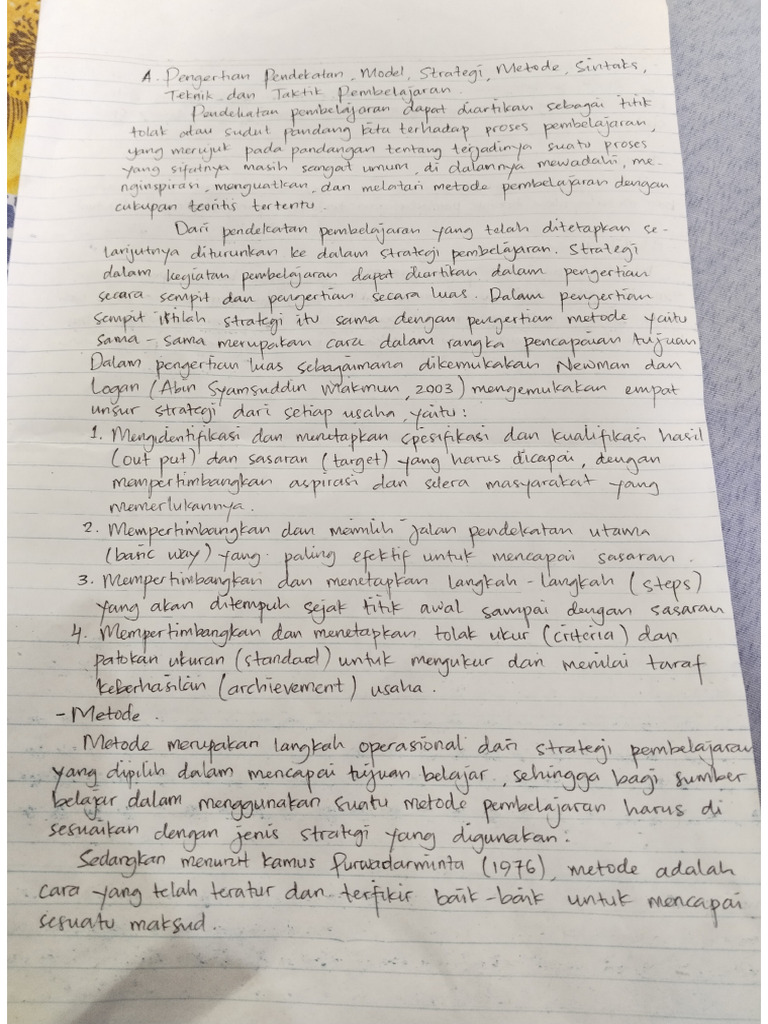 A. Pengertian Pendekatan, Model, Strategi, Metode, Sintaks,
Teknik dan Taktik Pembelajaran.
Pendekatan pembelajaran dapat diartikan sebagai titik
tolak atau sudut pandang kita terhadap proses pembelajaran,
yang merujuk pada pandangan tentang terjadinya suatu proses
yang sifatnya masih sangat umum, di dalamnya mewadahi, me-
nginspirasi, menguatkan, dan melatari metode pembelajaran dengan
cukupan teoritis tertentu.
Dari pendekatan pembelajaran yang telah ditetapkan se-
lanjutnya diturunkan ke dalam strategi pembelajaran. Strategi
dalam kegiatan pembelajaran dapat diartikan dalam pengertian
secara sempit dan pengertian secara luas. Dalam pengertian
sempit istilah strategi itu sama dengan pengertian metode yaitu
sama - sama merupakan cara dalam rangka pencapaian tujuan
Dalam pengertian luas sebagaimana dikemukakan Newman dan
Logan (Abin Syamsuddin Makmun, 2003) mengemukakan empat
unsur strategi dari setiap usaha, yaitu :
1. Mengidentifikasi dan menetapkan spesifikasi dan kualifikasi hasil
(out put) dan sasaran (target) yang harus dicapai, dengan
mempertimbangkan aspirasi dan selera masyarakat yang
memerlukannya.
2. Mempertimbangkan dan memilih jalan pendekatan utama
(basic way) yang paling efektif untuk mencapai sasaran.
3. Mempertimbangkan dan menetapkan langkah - langkah (steps)
yang akan ditempuh sejak titik awal sampai dengan sasaran
4. Mempertimbangkan dan menetapkan tolak ukur (criteria) dan
patokan ukuran (standard) untuk mengukur dan menilai taraf
keberhasilan (archievement) usaha.
- Metode.
Metode merupakan langkah operasional dari strategi pembelajaran
yang dipilih dalam mencapai tujuan belajar, sehingga bagi sumber
belajar dalam menggunakan suatu metode pembelajaran harus di
sesuaikan dengan jenis strategi yang digunakan.
Sedangkan menurut kamus Purwadarminta (1976), metode adalah
cara yang telah teratur dan terfikir baik-baik untuk mencapai
sesuatu maksud.